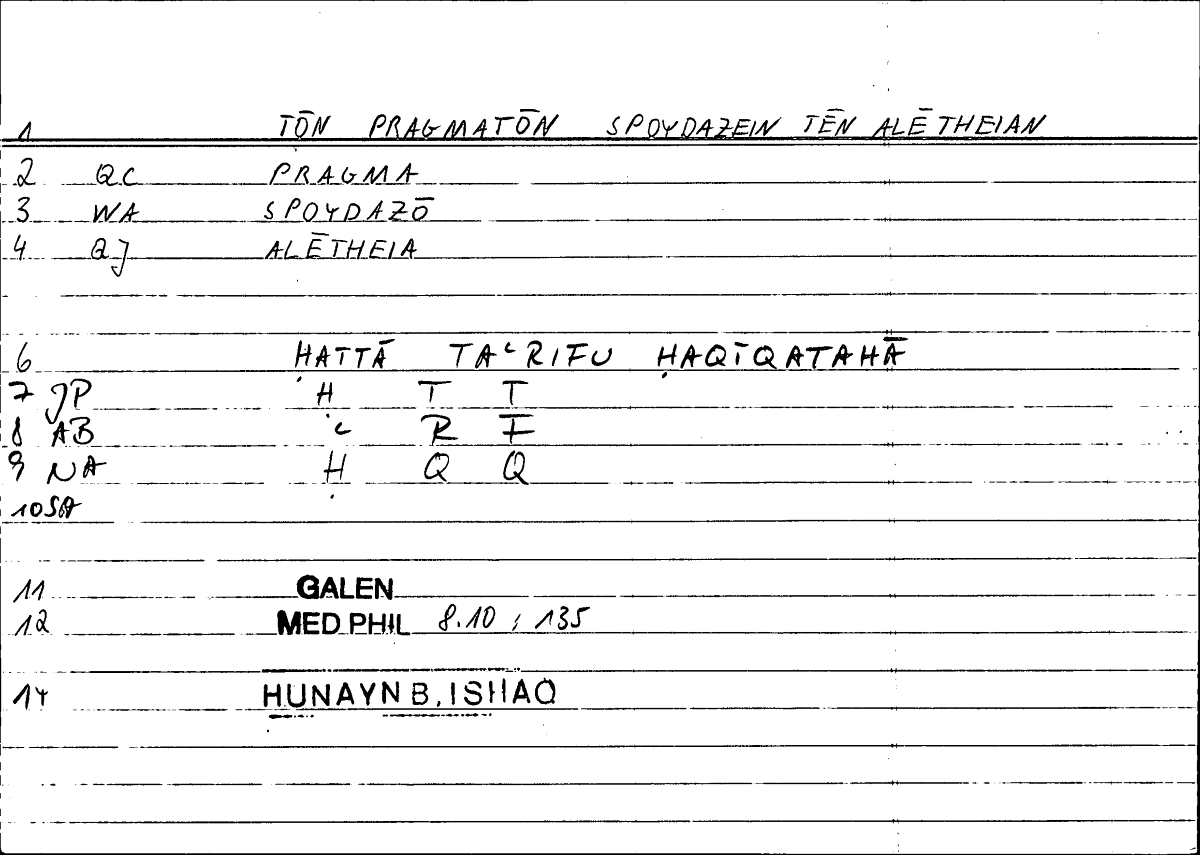 1 TŌN PRAGMATŌN SPOYDAZEIN TĒN ALĒTHEIAN
2 QC PRAGMA
3 WA SPOYDAZŌ
4 QJ ALĒTHEIA
6 ḤATTĀ TAʿRIFU ḤAQĪQATAHĀ
7 JP Ḥ T T
8 AB ʿ R F
9 NA Ḥ Q Q
10 SA
11 GALEN
12 MED PHIL 8.10 ; 135
14 ḤUNAYN B. ISḤAQ